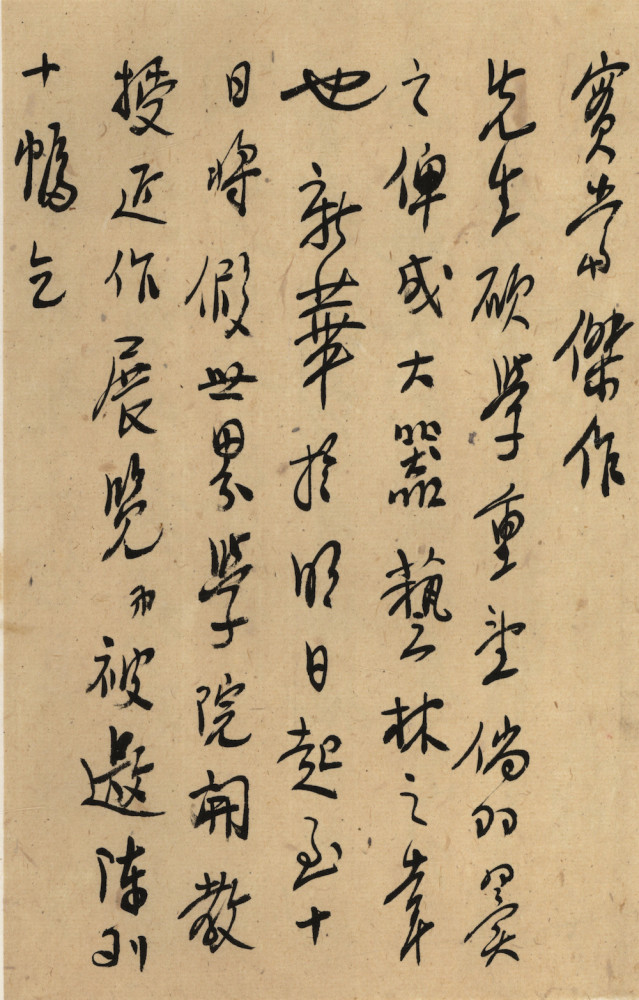 實當傑作
先生硕學重望倘羽翼
之俾成大器藝林之幸
也新華於明日起至十
日將假世界學院開教
授近作展覽亦被邀陳列
十幅乞